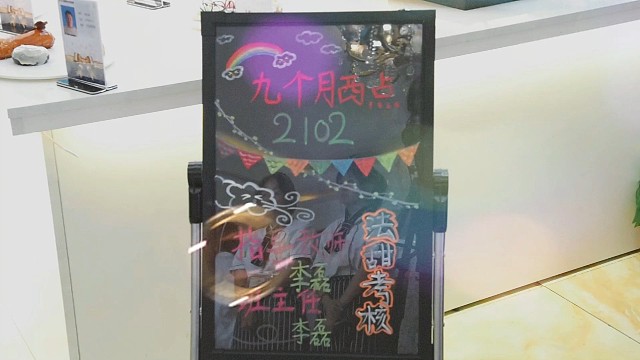 九个月西点
2102
指导教师
李磊
班主任
李磊
法甜考核